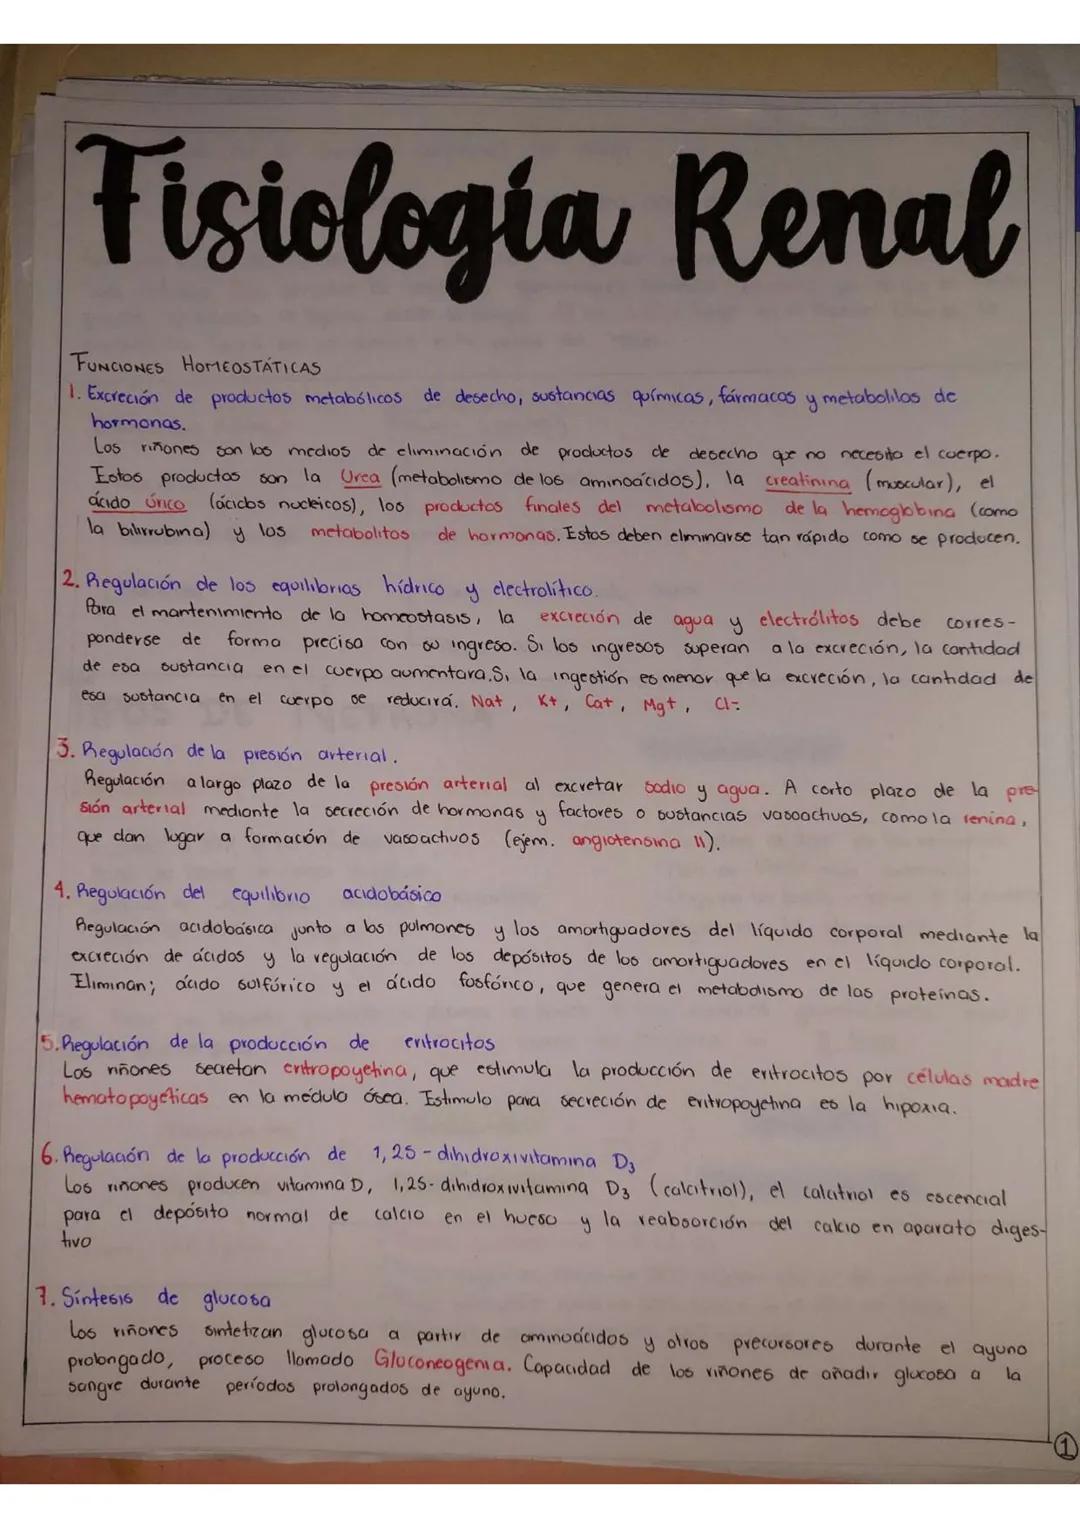 Fisiología Renal
FUNCIONES HOMEOSTÁTICAS
1. Excreción de productos metabólicos de desecho, sustancias químicas, fármacos y metabolilos de
hormonas.
Los riñones son los medios de eliminación de productos de desecho que no necesita el cuerpo.
Estos productos son la Urea (metabolismo de los aminoácidos), la creatinina (muscular), el
ácido úrico (ácidos nucleicos), los productos finales del metabolismo de la hemoglobina (como
la bilirrubina) y los metabolitos de hormonas. Estos deben elminarse tan rápido como se producen.
2. Regulación de los equilibrios hídrico y electrolítico.
Para el mantenimiento de la homeostasis, la excreción de agua y electrólitos debe corres-
ponderse de forma precisa con su ingreso. Si los ingresos superan a la excreción, la cantidad
de esa sustancia en el cuerpo aumentara. Si la ingestión es menor que la excreción, la cantidad de
esa sustancia en el cuerpo se reducirá. Na+, K+, Ca+, Mg+, Cl-
3. Regulación de la presión arterial.
Regulación a largo plazo de la presión arterial al excretar sodio y agua. A corto plazo de la pre-
sión arterial mediante la secreción de hormonas y factores o sustancias vasoactivas, como la renina,
que dan lugar a formación de vasoactivos (ejem. angiotensina II).
4. Regulación del equilibrio acidobásico
Regulación acidobásica junto a los pulmones y los amortiguadores del líquido corporal mediante la
excreción de ácidos y la regulación de los depósitos de los amortiguadores en el líquido corporal.
Eliminan; ácido sulfúrico y el ácido fosfórico, que genera el metabolismo de las proteínas.
5. Regulación de la producción de eritrocitos
Los riñones secretan eritropoyetina, que estimula la producción de eritrocitos por células madre
hematopoyéticas en la médula ósea. Estimulo para secreción de eritropoyetina es la hipoxia.
6. Regulación de la producción de 1,25-dihidroxivitamina D3
Los riñones producen vitamina D, 1,25-dihidroxivitamina D3 (calcitriol), el calcitriol es escencial
para el depósito normal de calcio en el hueso y la reabsorción del calcio en aparato diges-
tivo
7. Síntesis de glucosa
Los riñones sintetizan glucosa a partir de aminoácidos y otros precursores durante el ayuno
prolongado, proceso llamado Gluconeogenia. Capacidad de los riñones de añadir glucosa a la
sangre durante períodos prolongados de ayuno.
1